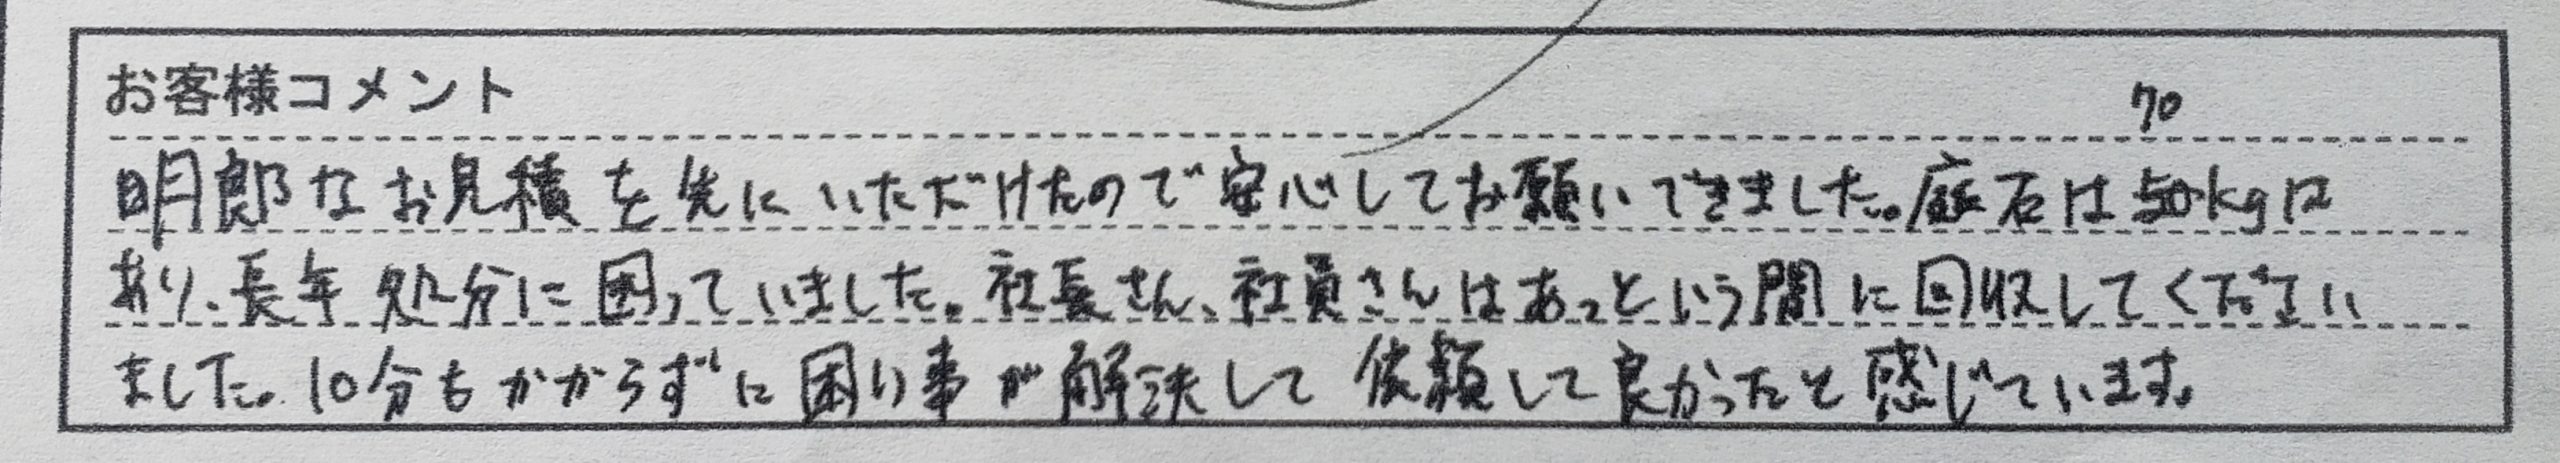 お客様コメント
70
明郎なお見積を先にいただけたので安心してお願いできました。庭石は50kgは
あり、長年処分に困っていました。社長さん、社員さんはあっという間に回収してください
ました。10分もかからずに困り事が解決して依頼して良かったと感じています。